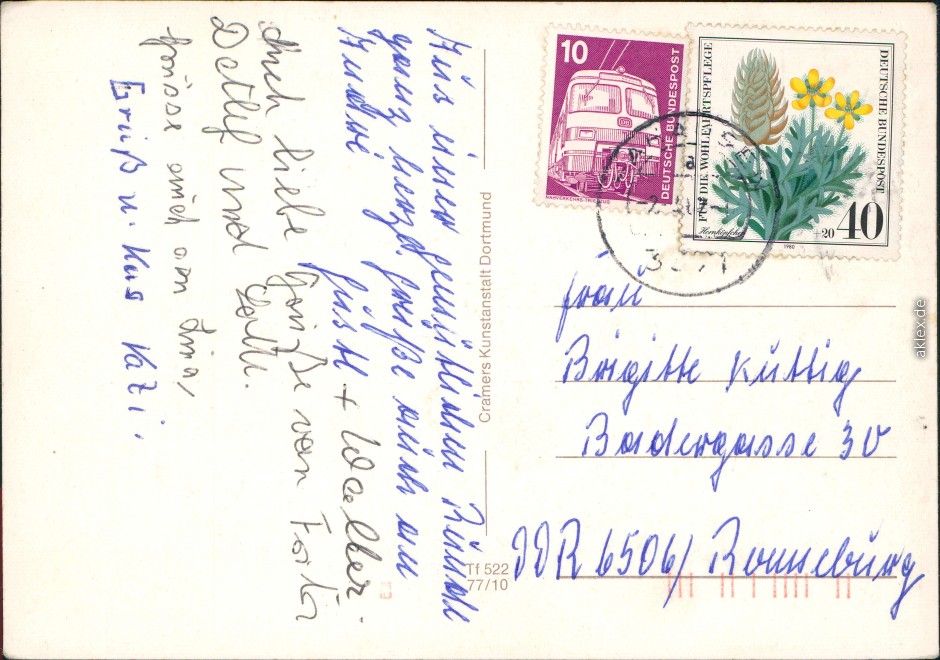 Aus einer gemütlichen Runde
ganz herzl. Grüße auch an
Gusti + Walther
Auch liebe Grüße von
Detlef und
Grüsse auch an
Gruß u. Kuss
Cramers Kunstanstalt Dortmund
Tf 522
77/10
10
DEUTSCHE BUNDESPOST
NAHVERKEHRS-TRIEBZUG
FÜR DIE WOHLFAHRTSPFLEGE
DEUTSCHE BUNDESPOST
Hornköpfchen
1980
+20
40
Frau
Brigitte Küttig
Badergasse 30
DDR 6506/ Ronneburg
aklex.de